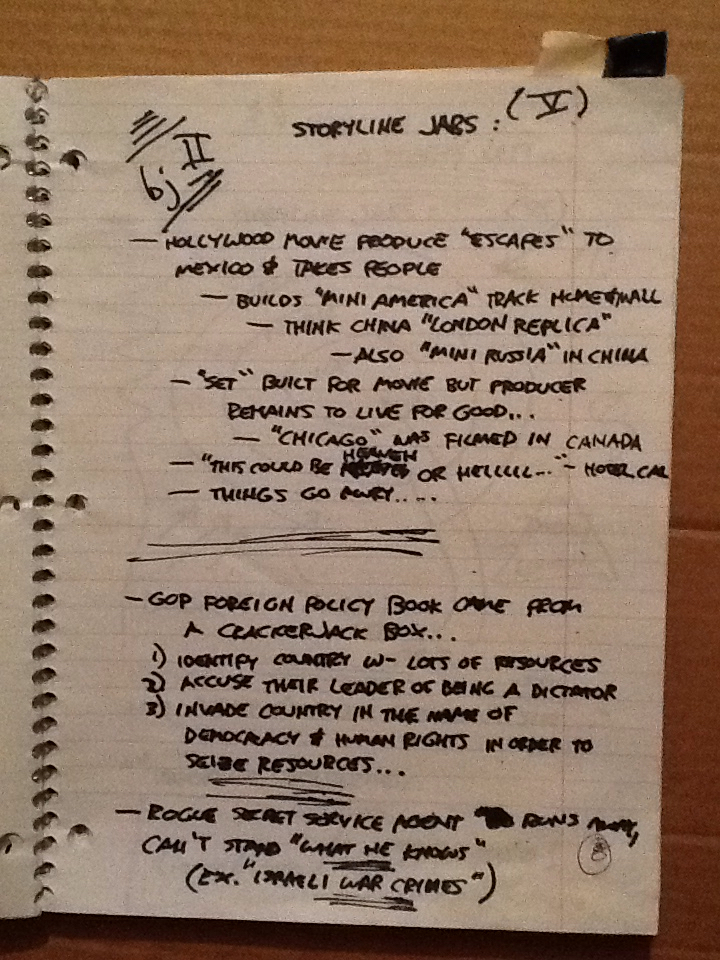 STORYLINE JABS : (V)
6j II
— HOLLYWOOD MOVIE PRODUCE "ESCAPES" TO
MEXICO & TAKES PEOPLE
— BUILDS "MINI AMERICA" TRACK HOME WALL
— THINK CHINA "LONDON REPLICA"
— ALSO "MINI RUSSIA" IN CHINA
— "SET" BUILT FOR MOVIE BUT PRODUCER
REMAINS TO LIVE FOR GOOD...
— "CHICAGO" WAS FILMED IN CANADA
— "THIS COULD BE HEAVEN OR HELLLLL..." - HOTEL CAL
— THINGS GO AWRY.....
— GOP FOREIGN POLICY BOOK CAME FROM
A CRACKERJACK BOX...
1) IDENTIFY COUNTRY W- LOTS OF RESOURCES
2) ACCUSE THEIR LEADER OF BEING A DICTATOR
3) INVADE COUNTRY IN THE NAME OF
DEMOCRACY & HUMAN RIGHTS IN ORDER TO
SEIZE RESOURCES...
— ROGUE SECRET SERVICE AGENT RUNS AWAY,
CAN'T STAND "WHAT HE KNOWS"
(EX. "ISRAELI WAR CRIMES")
8